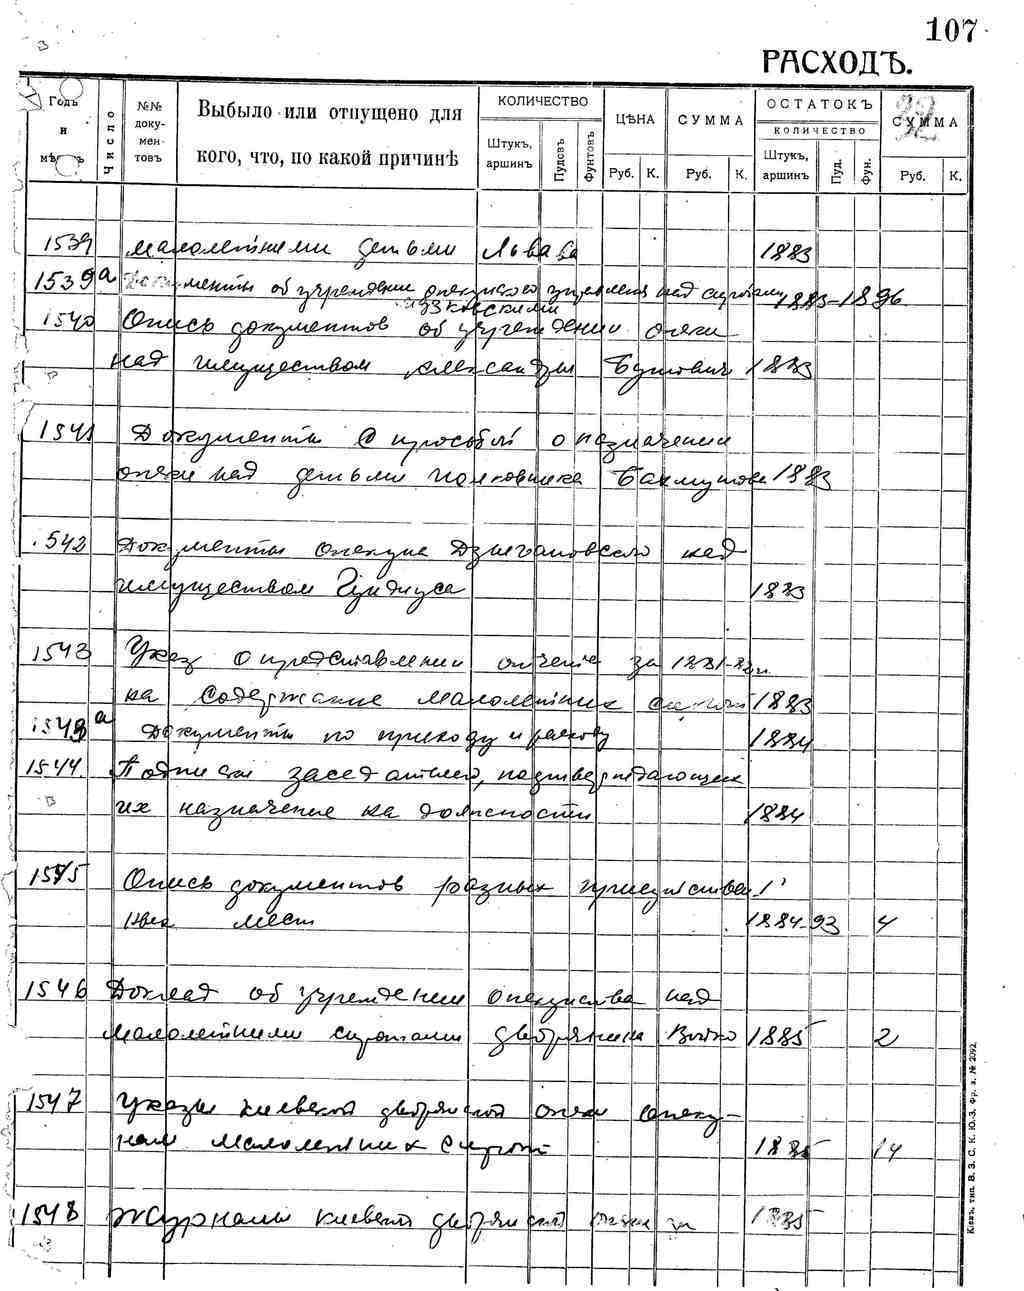 107
РАСХОДЪ.
Годъ и мѣсяцъ Число №№ документовъ Выбыло или отпущено для кого, что, по какой причинѣ КОЛИЧЕСТВО Штукъ, аршинъ Пудовъ Фунтовъ ЦѢНА Руб. К. СУММА Руб. К. ОСТАТОКЪ КОЛИЧЕСТВО Штукъ, аршинъ Пуд. Фун. СУММА Руб. К.
32
1539 малолетними детьми Львова 1883
1539а Документы об учреждении опекунского управления над сиротами 1883-1896
1540 Опись документов об учреждении опеки
над имуществом Александры Бутович 1883
1541 Документы с просьбой о назначении
опеки над детьми полковника Бахмутова 1883
1542 Документы опекуна Дзыгановского над
имуществом Гундиуса 1883
1543 Указ о представлении отчета за 1881-82 г.
на содержание малолетних сирот 1883
1543а Документы по приходу и расходу 1884
1544 Подписки заседателей, подтверждающие
их назначение на должности 1884
1545 Опись документов разных присутствен-
ных мест 1884-93 4
1546 Доклад об учреждении опекунства над
малолетними сиротами дворянина Войтко 1885 2
1547 Указы киевской дворянской опеки опеку-
нам малолетних сирот 1885 14
1548 Журналы киевской дворянской опеки за 1885
Кіевъ, тип. В. З. С. К. Ю.-З. Фр. з. № 2092.